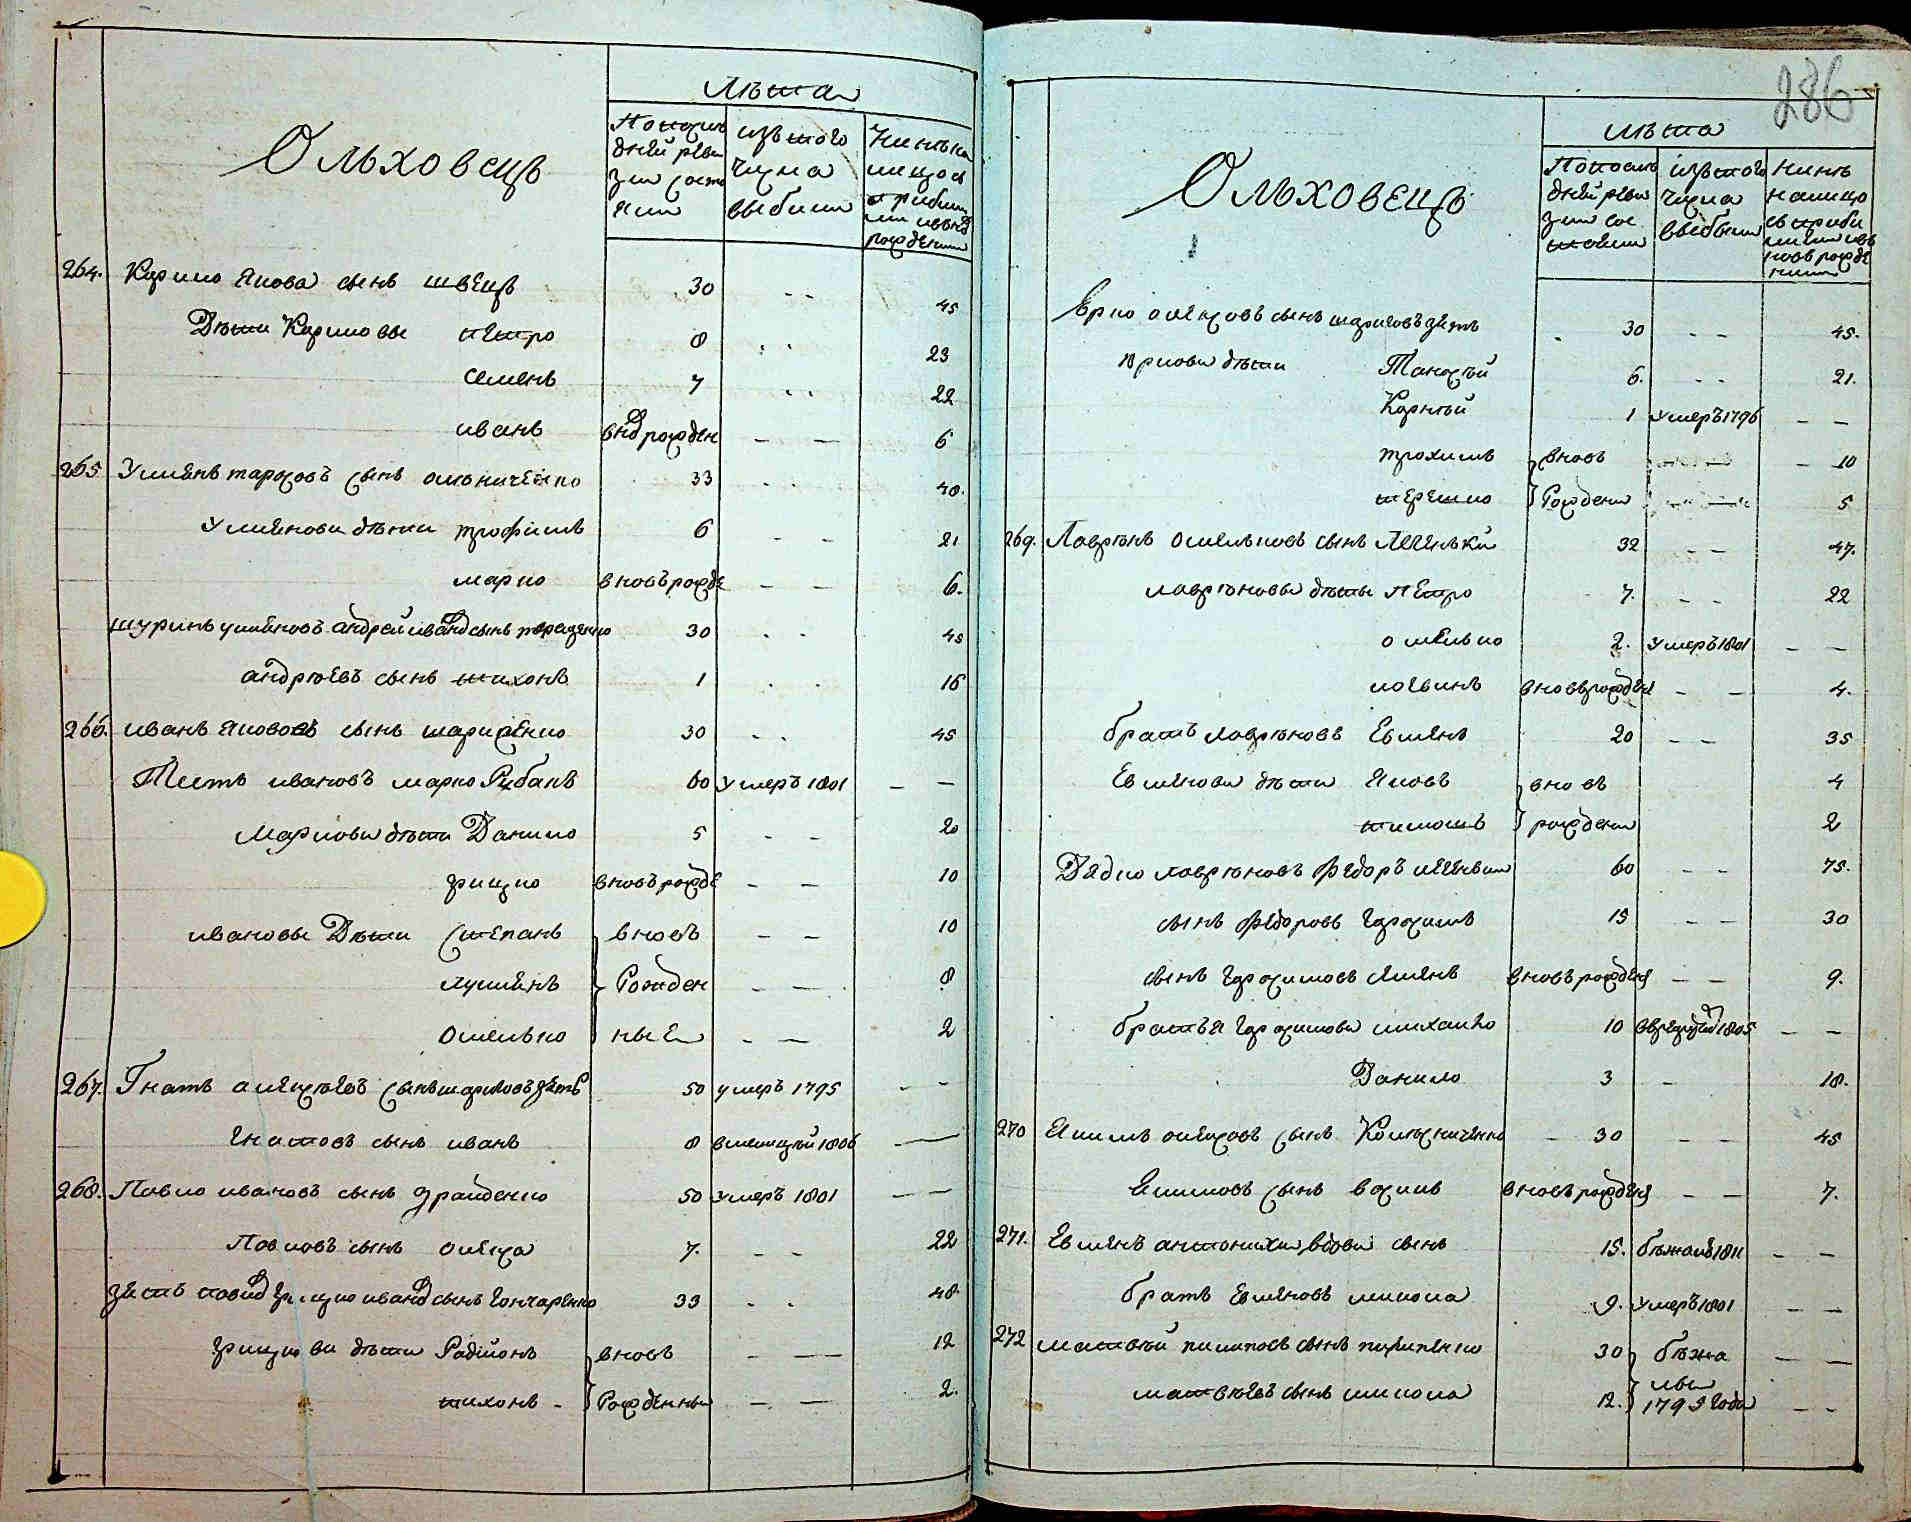 Ольховецъ
Лѣта
По послѣ
дней реви
зіи состо
яли
изъ того
числа
выбыли
Нинѣ на
лицо съ
прибил
ими и вно
рожденни
264. Карпо Якова сынъ швецъ 30 - - 45
Дѣти Карповы петро 8 - - 23
Семенъ 7 - - 22
иванъ вно рожден - - 6
265 Уліянъ тарасовъ сынъ 33 - - 48.
Уліянови дѣти трофимъ 6 - - 21
марко вновъ рожде - - 6.
шуринъ уліяновъ андрей иванов сынъ 30 - - 45
андрѣевъ сынъ тихонъ 1 - - 16
266. иванъ яковов сынъ 30 - - 45
Тесть ивановъ марко Рибакъ 60 умеръ 1801 - -
Маркови дѣти Данило 5 - - 20
грицко вновъ рожде - - 10
ивановы Дѣти Степанъ вновъ - - 10
лукіянъ Рожден - - 8
Омелько ные - - 2
267. Гнатъ алексѣевъ сынъ зять 50 умеръ 1795 - -
Гнатовъ сынъ иванъ 8 1806 —
268. Павло ивановъ сынъ 50 умеръ 1801 - -
Павловъ сынъ олекса 7. - - 22
зять павлов грицко иванов сынъ Гончаренко 33 - - 48.
грицкови дѣти Радіонъ вновъ - - 12
тихонъ - Рожденны - - 2.
286
Ольховецъ
лѣта
По послѣ
дней реви
зіи сос
тояли
изъ того
числа
выбыли
Нинѣ
налицо
съ приби
лими и въ
новъ рожде
ними
30 - - 45.
дѣти Панасъ 6. - - 21.
Карній 1 умеръ 1796 - -
трохимъ вновъ - 10
терешко Рождени 5
269. Лаврѣнъ омельковъ сынъ 32 - - 47.
лаврѣновы дѣты петро 7. - - 22
омелько 2. умеръ 1801 - -
логвинъ вновърожден - - 4.
братъ лаврѣновъ Евменъ 20 - - 35
Евменови дѣти Яковъ вновъ 4
тимошъ рождени 2
Дядко лаврѣновъ Федоръ 60 - - 75.
сынъ Федоровъ Герасимъ 15 - - 30
сынъ Герасимовъ вновърожден - - 9.
братья Герасимови михайло 10 в рекруты 1805 - -
Данило 3 - 18.
270 Якимъ олексовъ сынъ - 30 - - 45
Якимовъ сынъ василь вновърожден - - 7.
271. Евменъ вдови сынъ 15. бѣжалъ 1811 - -
братъ Евменовъ микола 9. умеръ 1801 - -
272 матвѣй пилиповъ сынъ пилипенко 30 бѣжа - -
ли
матвѣевъ сынъ микола 12. 1793 года - -